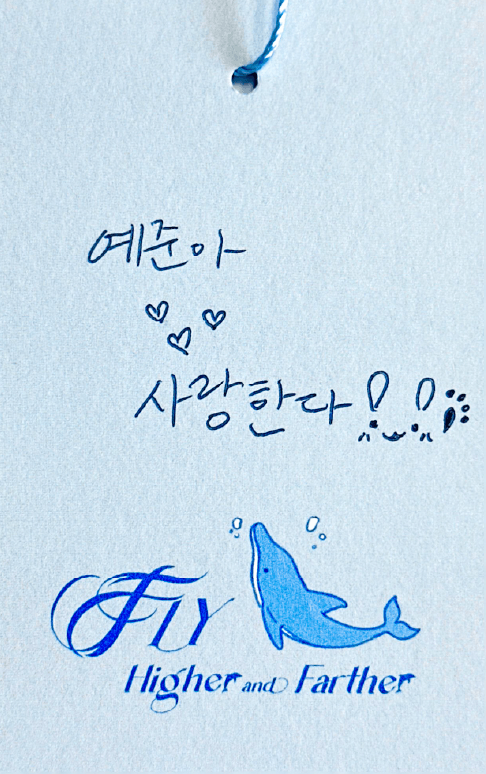 예준아
♡♡♡
사랑한다!!
FLY
Higher and Farther